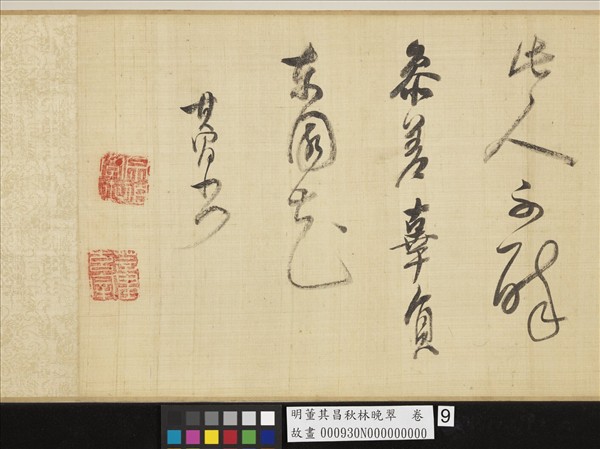 此人不醉
參差辜負
東園花
其昌書
宗伯學士
明董其昌秋林晚翠 卷
故畫 000930N000000000
9